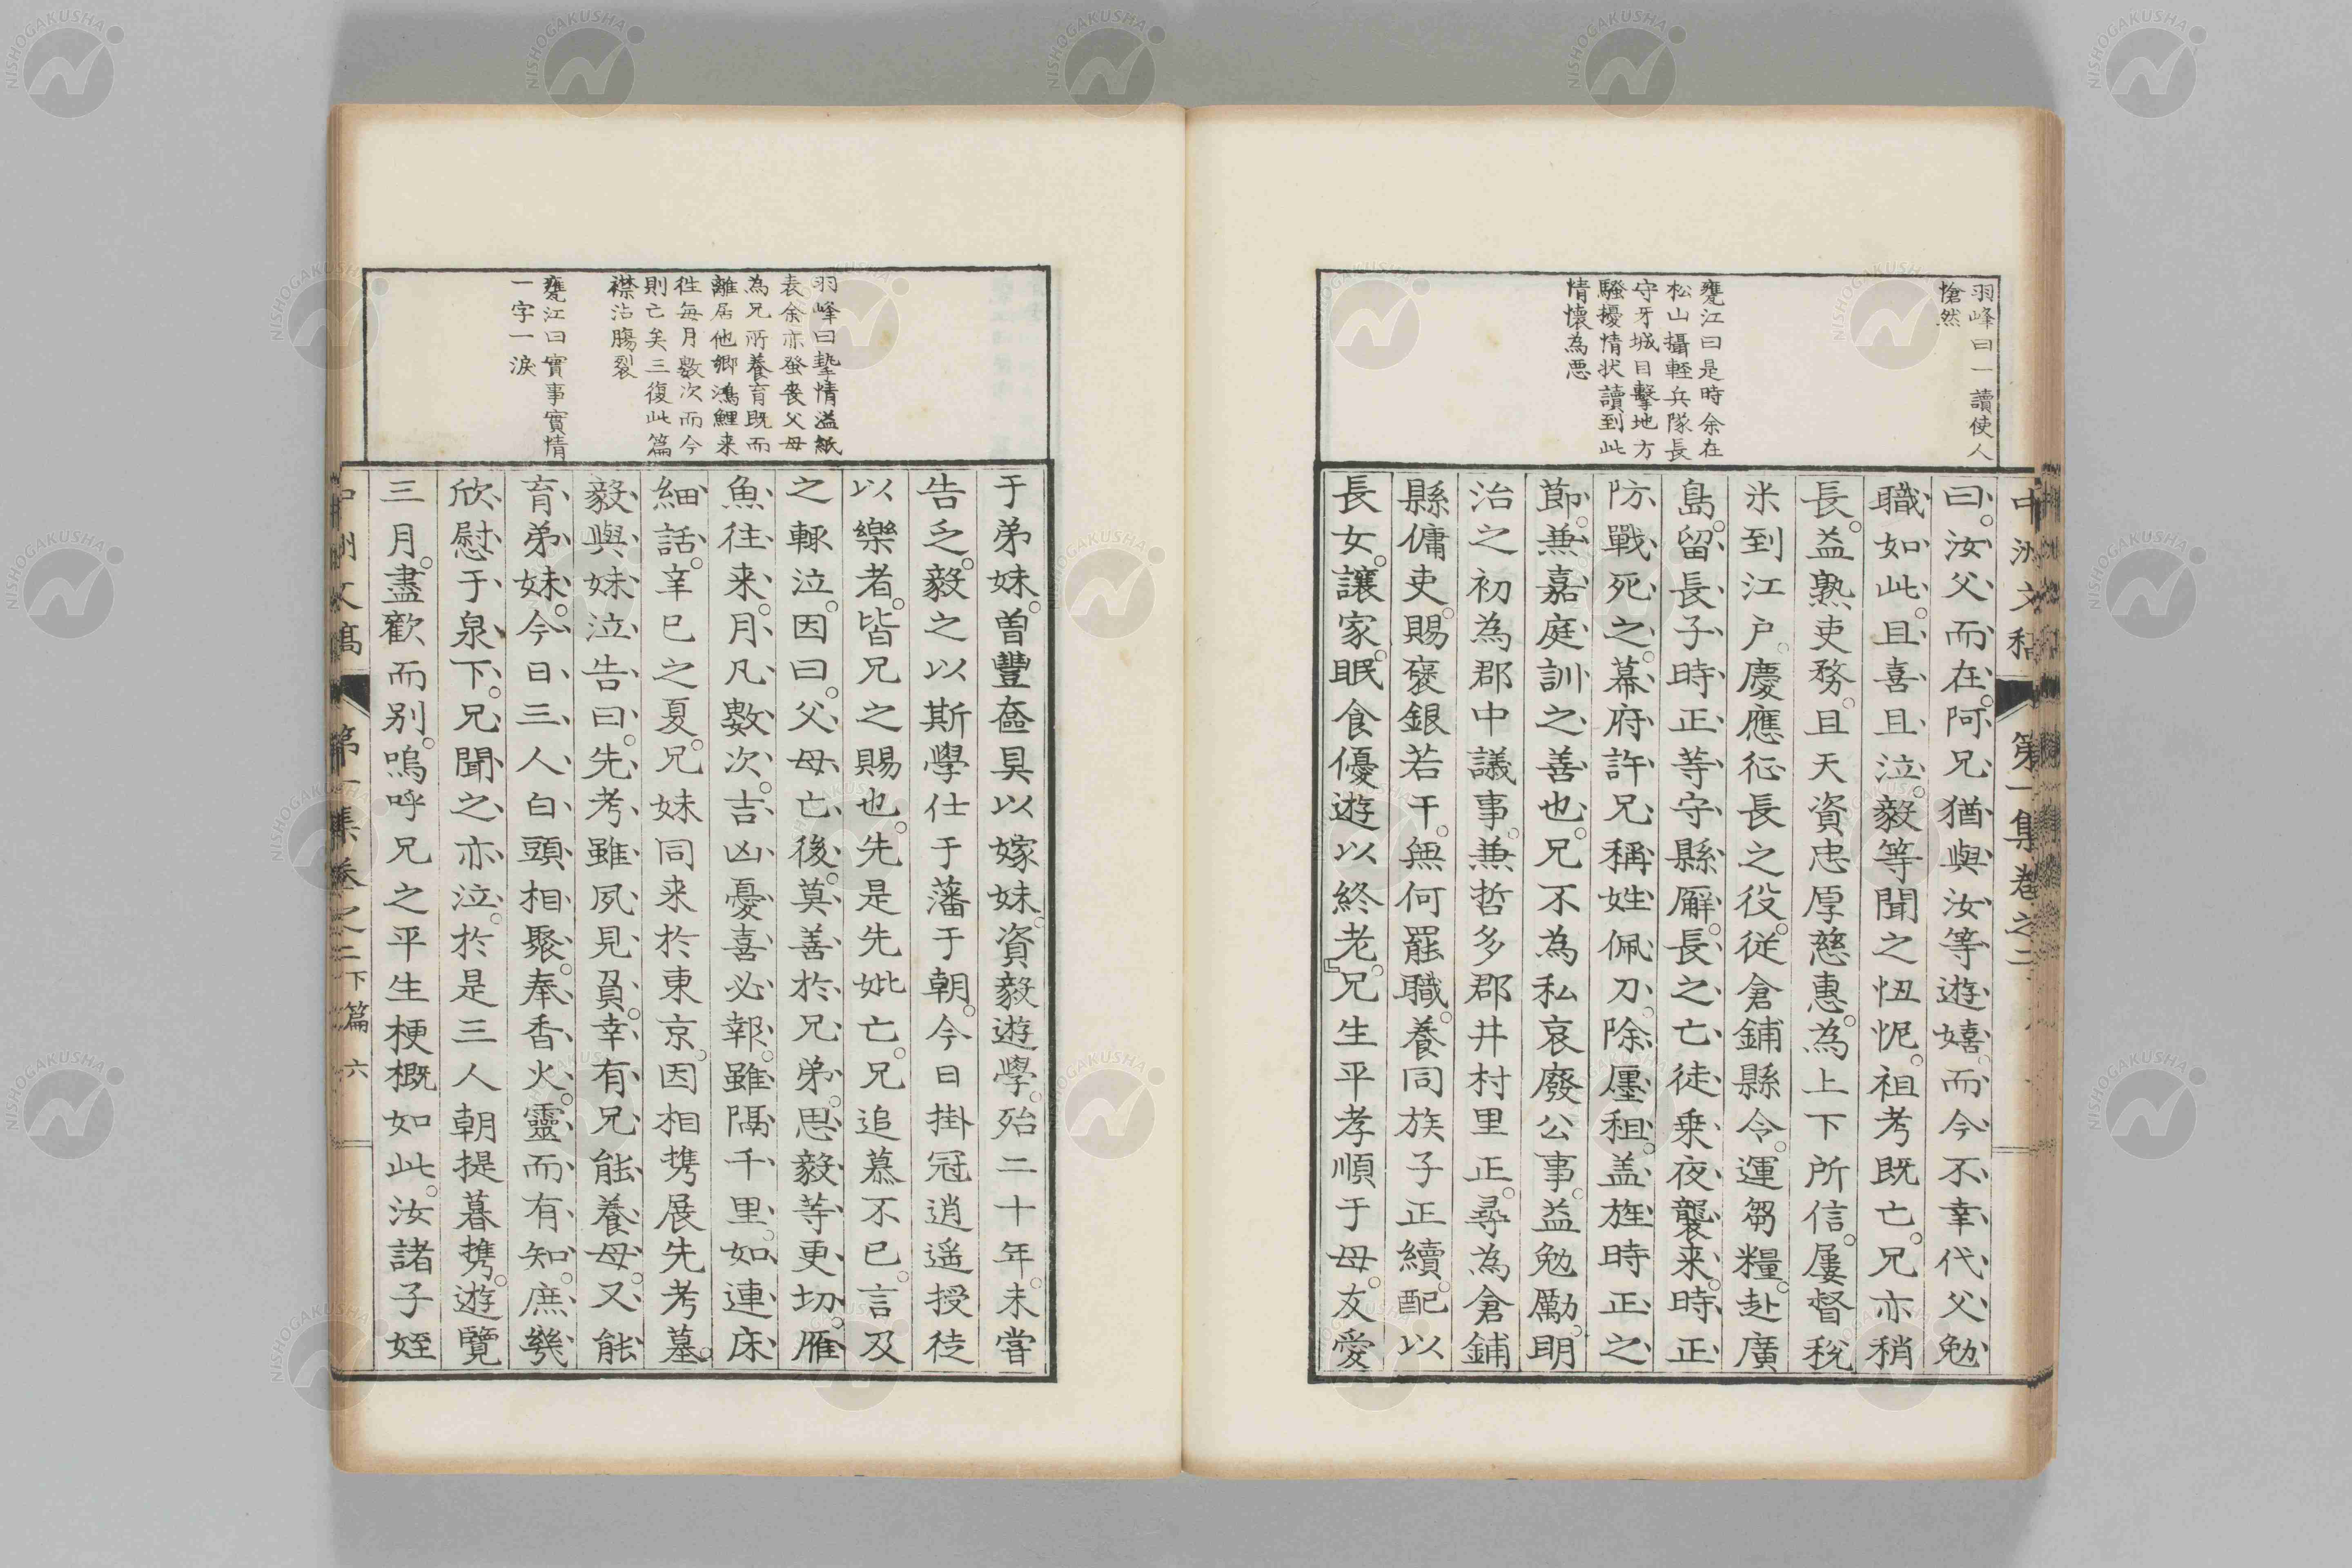 中洲文稿 第一集卷之二
羽峰曰一讀使人
愴然
甕江曰是時余在
松山攝輕兵隊長
守牙城目擊地方
騷擾情状讀到此
情懷為悪
曰。汝父而在。阿兄猶與汝等遊嬉。而今不幸代父勉
職如此。且喜且泣。毅等聞之忸怩。祖考既亡。兄亦稍
長。益熟吏務。且天資忠厚慈惠。為上下所信。屢督稅
米到江戶。慶應征長之役。從倉鋪縣令。運芻糧。赴廣
島。留長子時正等守縣廨。長之亡徒乗夜襲来。時正
防戰死之。幕府許兄稱姓佩刀。除廛租。盖旌時正之
節。兼嘉庭訓之善也。兄不為私哀廢公事。益勉勵。明
治之初為郡中議事。兼哲多郡井村里正。尋為倉鋪
縣傭吏。賜褒銀若干。無何罷職。養同族子正續。配以
長女。讓家。眠食優遊以終老。』兄生平孝順于母。友愛
羽峰曰摯情溢紙
表余亦蚤喪父母
為兄所養育既而
離居他鄉鴻鯉来
徃每月數次而今
則亡矣三復此篇
襟沾膓裂
甕江曰實事實情
一字一淚
于弟妹。曽豐奩具以嫁妹。資毅遊學。殆二十年。未嘗
告乏。毅之以斯學仕于藩于朝。今日掛冠逍遥授徒
以樂者。皆兄之賜也。先是先妣亡。兄追慕不已。言及
之輙泣。因曰。父母亡後。莫善於兄弟。思毅等更切。雁
魚往来。月凡數次。吉凶憂喜必報。雖隔千里。如連床
細話。辛巳之夏。兄妹同来於東京。因相携展先考墓。
毅與妹泣告曰。先考雖夙見負。幸有兄能養母。又能
育弟妹。今日三人白頭相聚。奉香火。靈而有知。庶幾
欣慰于泉下。兄聞之亦泣。於是三人朝提暮携。遊覽
三月。盡歡而别。嗚呼兄之平生梗概如此。汝諸子姪
中洲文稿 第一集卷之二下篇 六